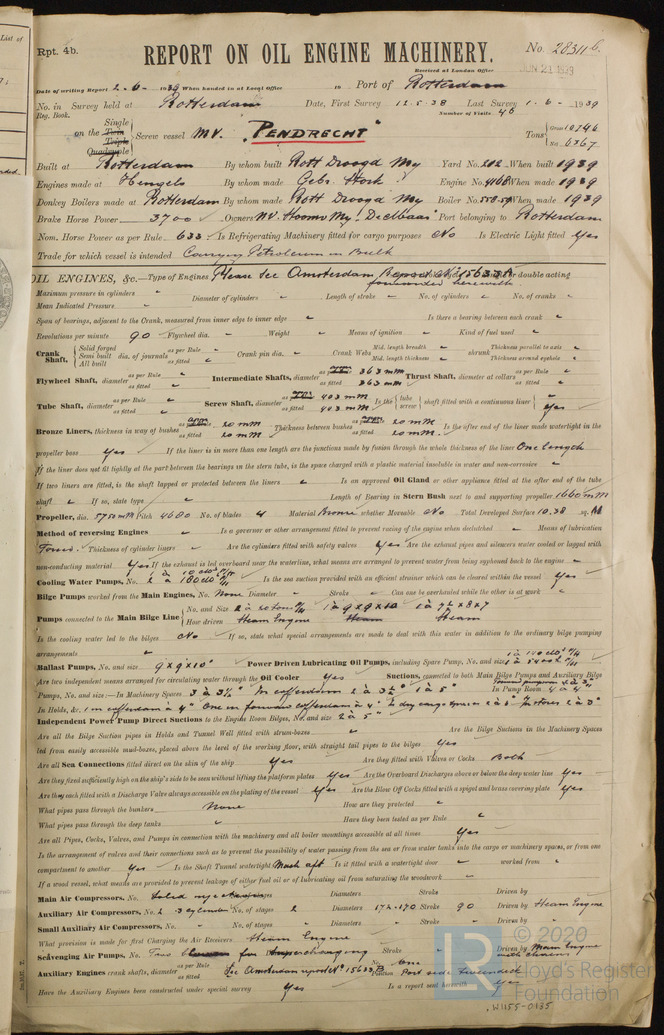 List of
Rpt. 4b.
REPORT ON OIL ENGINE MACHINERY.
No. 28311 b.
Received at London Office
JUN 21 1939
Date of writing Report 2-6- 1939 When handed in at Local Office 19 Port of Rotterdam
No. in Survey held at Rotterdam Date, First Survey 12.5.38 Last Survey 1-6- 1939
Reg. Book. Number of Visits 46
on the Single Twin Triple Quadruple Screw vessel M.V. "PENDRECHT" Tons Gross 10746 Net 6367
Built at Rotterdam By whom built Rott Droogd My Yard No. 202 When built 1939
Engines made at Hengelo By whom made Gebr. Stork Engine No. 4168 When made 1939
Donkey Boilers made at Rotterdam By whom made Rott Droogd My Boiler No. 558-59 When made 1939
Brake Horse Power 3700 Owners N.V. Stoomv My. "Dielbaas" Port belonging to Rotterdam
Nom. Horse Power as per Rule 633 Is Refrigerating Machinery fitted for cargo purposes No Is Electric Light fitted Yes
Trade for which vessel is intended Carrying Petroleum in Bulk
OIL ENGINES, &c.—Type of Engines Please see Amsterdam Report No 15633A double acting
forwarded herewith
Maximum pressure in cylinders " Diameter of cylinders " Length of stroke " No. of cylinders " No. of cranks "
Mean Indicated Pressure "
Span of bearings, adjacent to the Crank, measured from inner edge to inner edge " Is there a bearing between each crank "
Revolutions per minute 90 Flywheel dia. " Weight " Means of ignition " Kind of fuel used "
Crank Shaft, Solid forged Semi built All built dia. of journals as per Rule " as fitted " Crank pin dia. " Crank Webs Mid. length breadth " Mid. length thickness " shrunk Thickness parallel to axis " Thickness around eyehole "
Flywheel Shaft, diameter as per Rule " as fitted " Intermediate Shafts, diameter appr 363 mm as fitted 363 mm Thrust Shaft, diameter at collars as per Rule " as fitted "
Tube Shaft, diameter as per Rule " as fitted " Screw Shaft, diameter appr 403 mm as fitted 403 mm Is the tube screw shaft fitted with a continuous liner Yes
Bronze Liners, thickness in way of bushes appr 20 mm as fitted 20 mm Thickness between bushes appr 20 mm as fitted 20 mm. Is the after end of the liner made watertight in the
propeller boss Yes If the liner is in more than one length are the junctions made by fusion through the whole thickness of the liner One length
If the liner does not fit tightly at the part between the bearings in the stern tube, is the space charged with a plastic material insoluble in water and non-corrosive "
If two liners are fitted, is the shaft lapped or protected between the liners " Is an approved Oil Gland or other appliance fitted at the after end of the tube
shaft " If so, state type " Length of Bearing in Stern Bush next to and supporting propeller 1660 mm
Propeller, dia. 5750 mm Pitch 4680 No. of blades 4 Material Bronze whether Moveable No Total Developed Surface 10.38 sq. M
Method of reversing Engines " Is a governor or other arrangement fitted to prevent racing of the engine when declutched " Means of lubrication
Forced. Thickness of cylinder liners " Are the cylinders fitted with safety valves Yes Are the exhaust pipes and silencers water cooled or lagged with
non-conducting material Yes If the exhaust is led overboard near the waterline, what means are arranged to prevent water from being syphoned back to the engine "
Cooling Water Pumps, No. Is the sea suction provided with an efficient strainer which can be cleared within the vessel Yes
Bilge Pumps worked from the Main Engines, No. None Diameter " Stroke " Can one be overhauled while the other is at work "
Pumps connected to the Main Bilge Line No. and Size 1 à 9 x 9 x 10 1 à 7½ x 8 x 7
How driven Steam Engine Steam Steam
Is the cooling water led to the bilges No If so, state what special arrangements are made to deal with this water in addition to the ordinary bilge pumping
arrangements "
Ballast Pumps, No. and size 9 x 9 x 10" Power Driven Lubricating Oil Pumps, including Spare Pump, No. and size
Are two independent means arranged for circulating water through the Oil Cooler Yes Suctions, connected to both Main Bilge Pumps and Auxiliary Bilge
Pumps, No. and size:—In Machinery Spaces 3 à 3½" In cofferdam 2 à 3½" 1 à 5" In Pump Room 4 à 4"
In Holds, &c. 1 in cofferdam à 4" One in forward cofferdam à 4" In dry cargo space 2 à 5" In stores 2 à 3"
Independent Power Pump Direct Suctions to the Engine Room Bilges, No. and size 2 à 5"
Are all the Bilge Suction pipes in Holds and Tunnel Well fitted with strum-boxes " Are the Bilge Suctions in the Machinery Spaces
led from easily accessible mud-boxes, placed above the level of the working floor, with straight tail pipes to the bilges Yes
Are all Sea Connections fitted direct on the skin of the ship Yes Are they fitted with Valves or Cocks Both
Are they fixed sufficiently high on the ship's side to be seen without lifting the platform plates Yes Are the Overboard Discharges above or below the deep water line Yes
Are they each fitted with a Discharge Valve always accessible on the plating of the vessel Yes Are the Blow Off Cocks fitted with a spigot and brass covering plate Yes
What pipes pass through the bunkers None How are they protected "
What pipes pass through the deep tanks " Have they been tested as per Rule "
Are all Pipes, Cocks, Valves, and Pumps in connection with the machinery and all boiler mountings accessible at all times Yes
Is the arrangement of valves and their connections such as to prevent the possibility of water passing from the sea or from water tanks into the cargo or machinery spaces, or from one
compartment to another Yes Is the Shaft Tunnel watertight Mach aft Is it fitted with a watertight door " worked from "
If a wood vessel, what means are provided to prevent leakage of either fuel oil or of lubricating oil from saturating the woodwork "
Main Air Compressors, No. Solid injection No. of stages Diameters Stroke Driven by
Auxiliary Air Compressors, No. 2 3 cylinder No. of stages 2 Diameters 172-170 Stroke 90 Driven by Steam Engine
Small Auxiliary Air Compressors, No. " No. of stages " Diameters " Stroke " Driven by "
What provision is made for first Charging the Air Receivers Steam Engine
Scavenging Air Pumps, No. Two for supercharging Stroke " Driven by Main Engine with chains
Auxiliary Engines crank shafts, diameter as per Rule as fitted See Amsterdam report No 15633B No. One Position Port side
Have the Auxiliary Engines been constructed under special survey Yes Is a report sent herewith Yes
© 2020
LR
Lloyd's Register
Foundation
W1155-0135